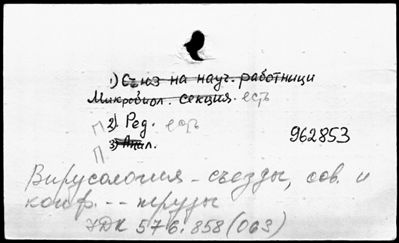 1) Съюз на науч. работници
Микробиол. секция. есть
П 2) Ред. есть
П. 3) Анал.
962853
Вирусология - съезды, сов. и
конф. -- труды
УДК 576.858(063)